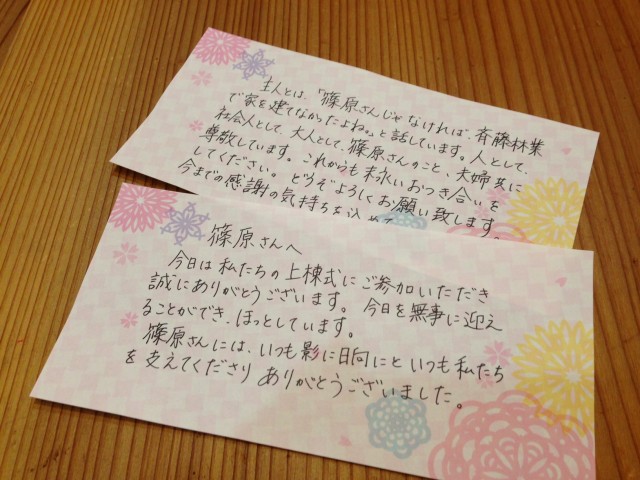 主人とは、「篠原さんじゃなければ、斉藤林業
で家を建てなかったよね。」と話しています。人として、
社会人として、大人として、篠原さんのこと、夫婦共に
尊敬しています。これからも末永いおつき合いを
してください。どうぞよろしくお願い致します。
今までの感謝の気持ちを込めて
篠原さんへ
今日は私たちの上棟式にご参加いただき
誠にありがとうございます。今日を無事に迎え
ることができ、ほっとしています。
篠原さんには、いつも影に日向にといつも私たち
を支えてくださり ありがとうございました。